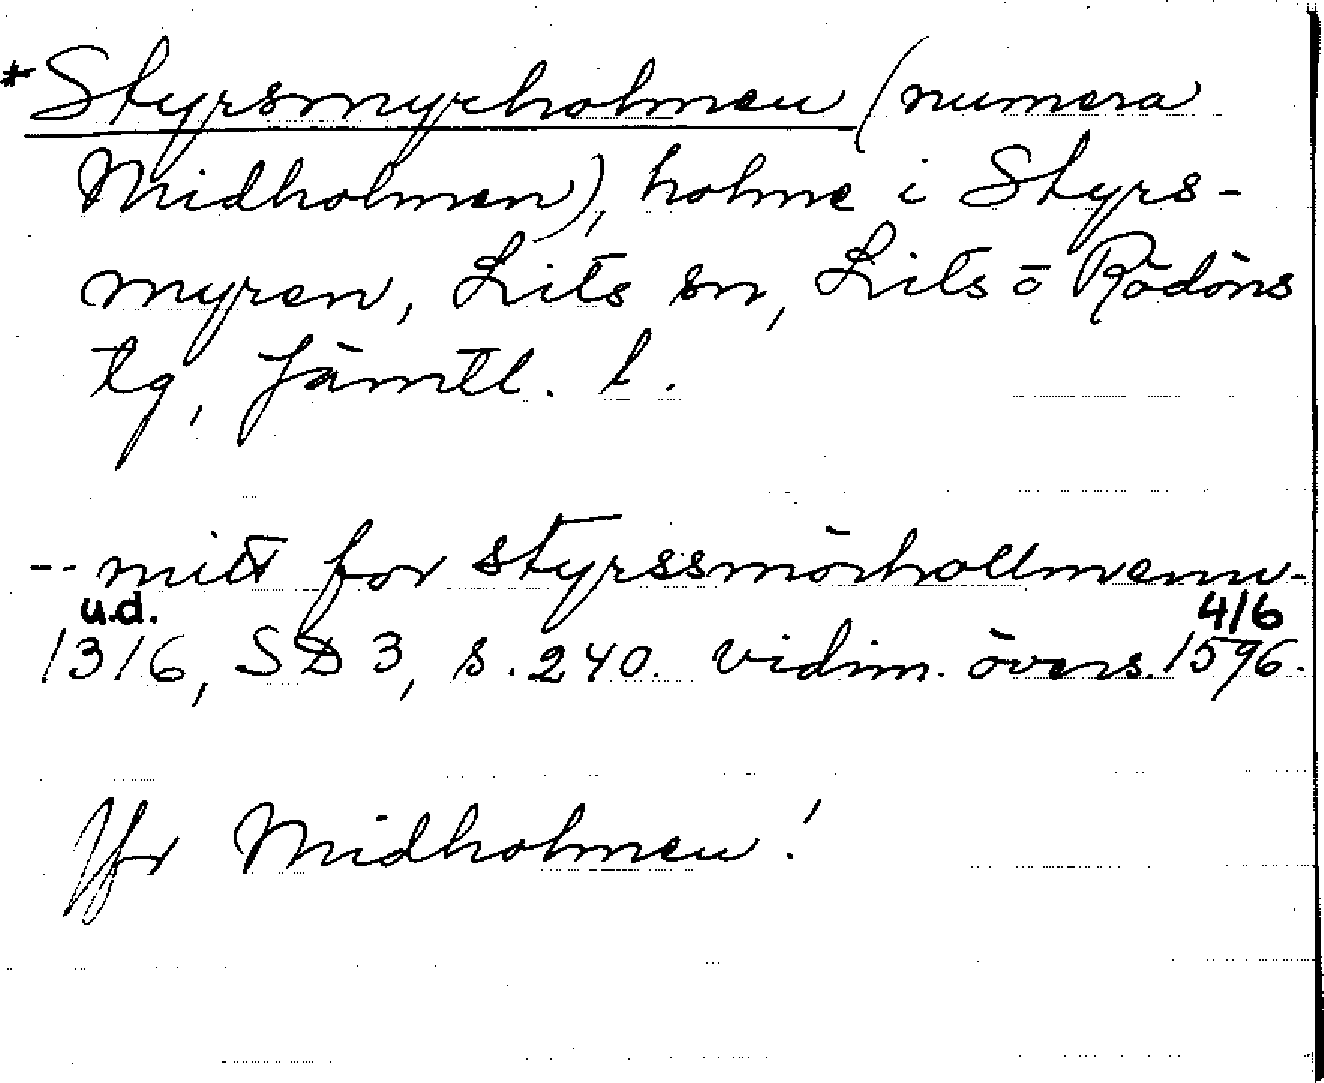 *Styrsmyrholmen (numera
Midholmen), holme i Styrs-
myren, Lits sn, Lits o Rödöns
tg, Jämtl. l.
-- mitt for styrssmörhollmenn-
u.d. 4/6
1316, SD 3, s. 240. vidim. övers. 1596.
Jfr Midholmen!